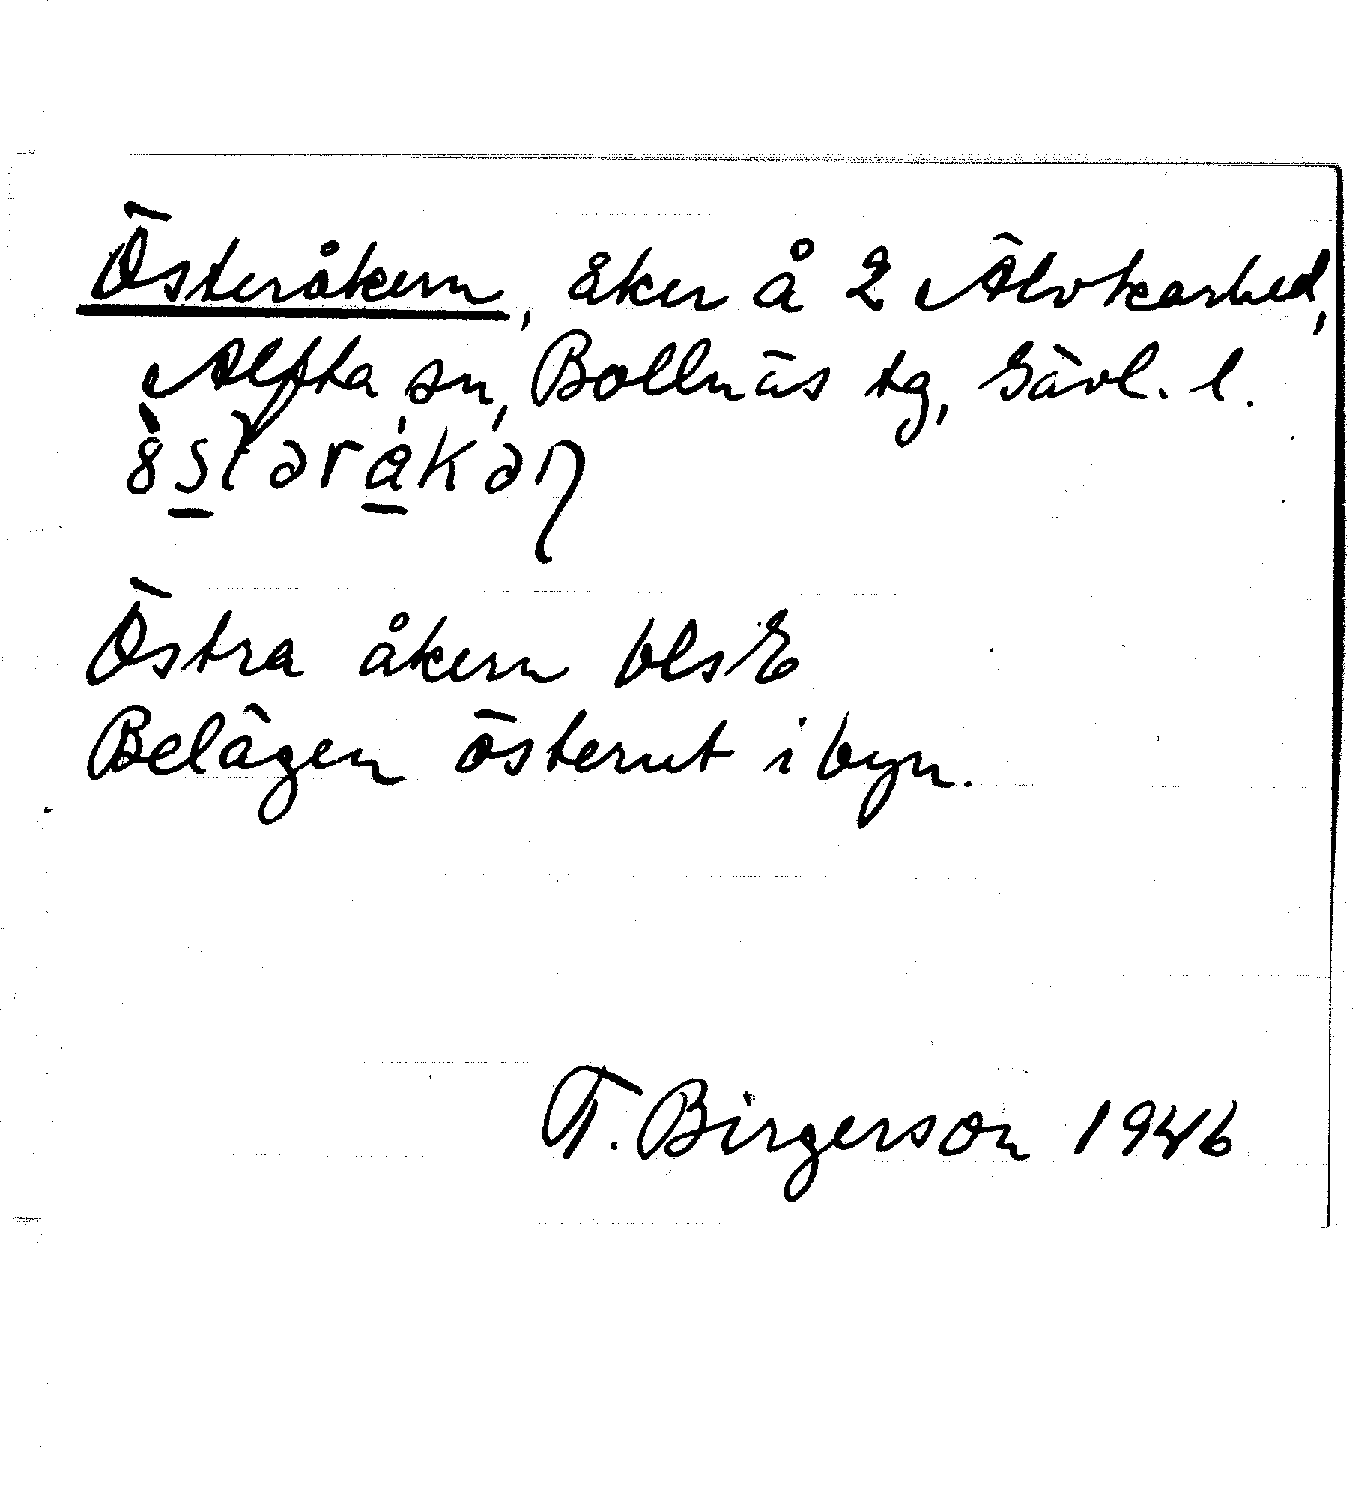 Österåkern, åker å 2 Älvkarhed,
Alfta sn, Bollnäs tg, Gävl. l.
Östra åkern bls E
Belägen österut i byn.
T. Birgerson 1946